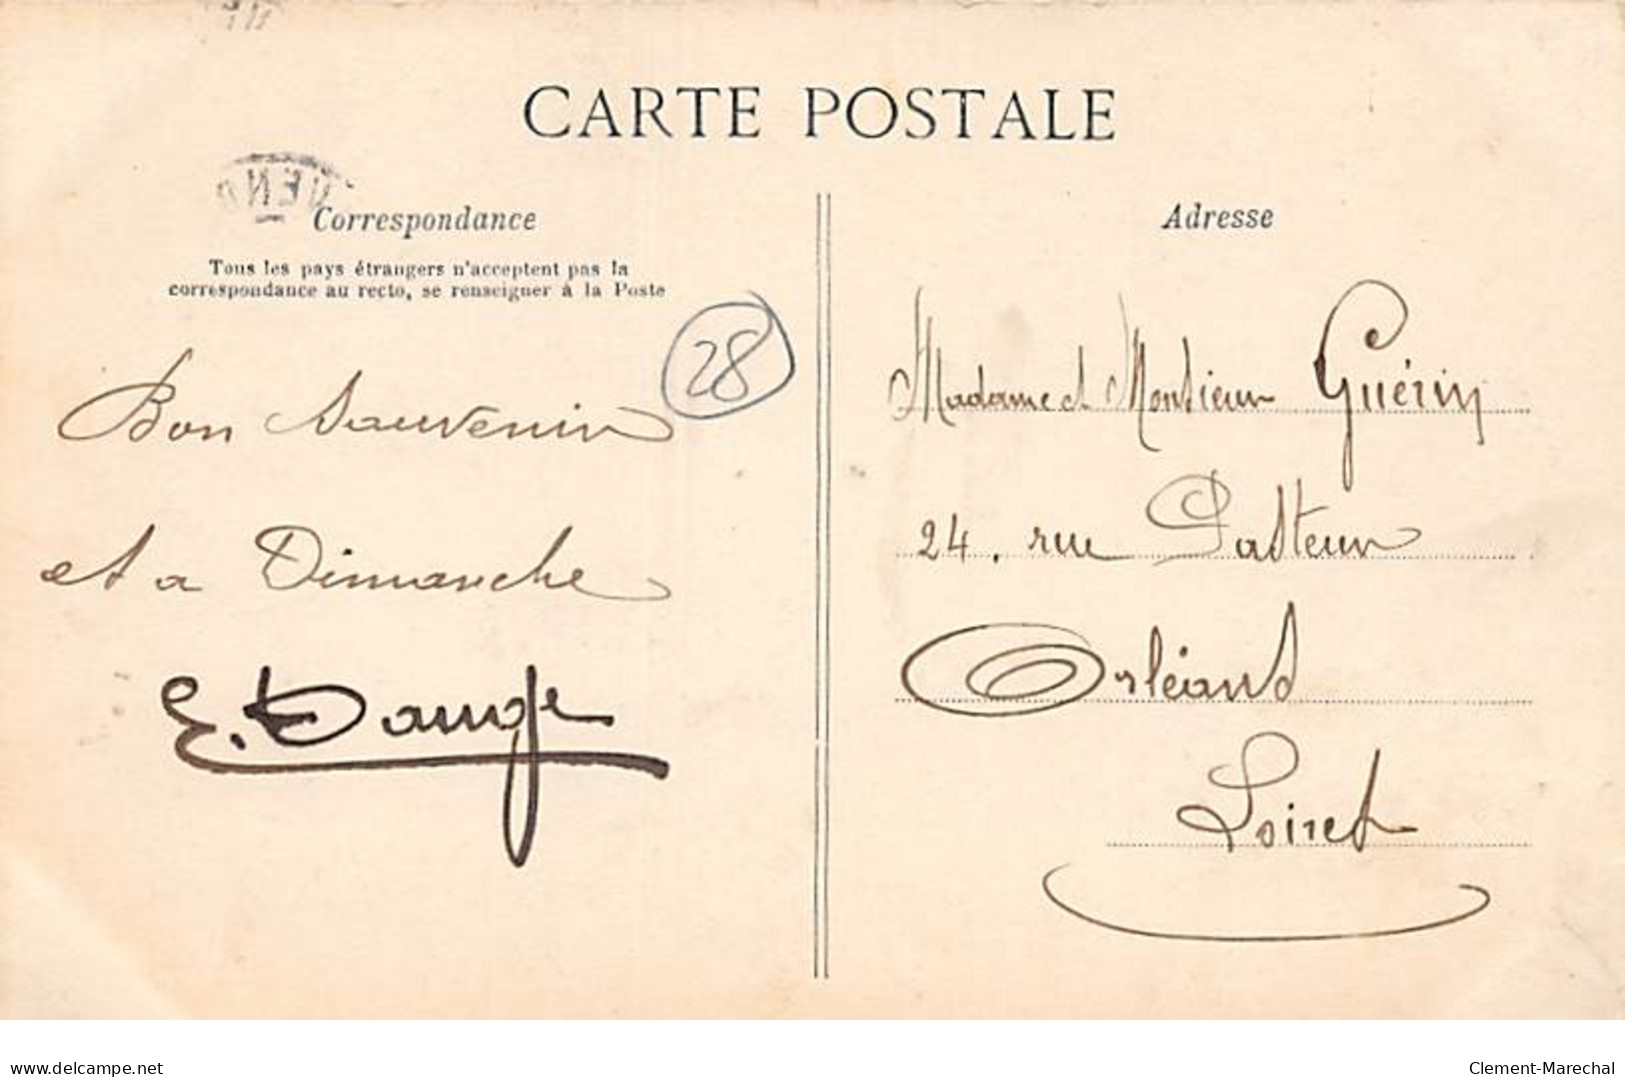 CARTE POSTALE
Correspondance
Tous les pays étrangers n'acceptent pas la
correspondance au recto, se renseigner à la Poste
28
Bon Souvenir
et a Dimanche
E. Dauge
Adresse
Madame et Monsieur Guérin
24. rue Pasteur
Orléans
Loiret
www.delcampe.net
Clement-Marechal